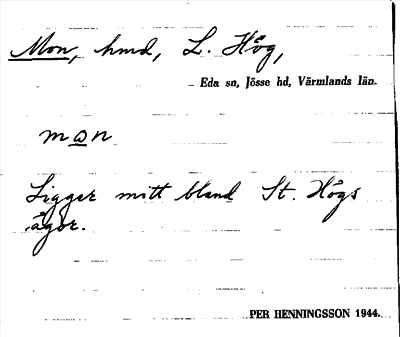 Mon, hmd, L. Hög,
Eda sn, Jösse hd, Värmlands län.
mωn
Ligger mitt bland St. Högs
ägor.
PER HENNINGSSON 1944.